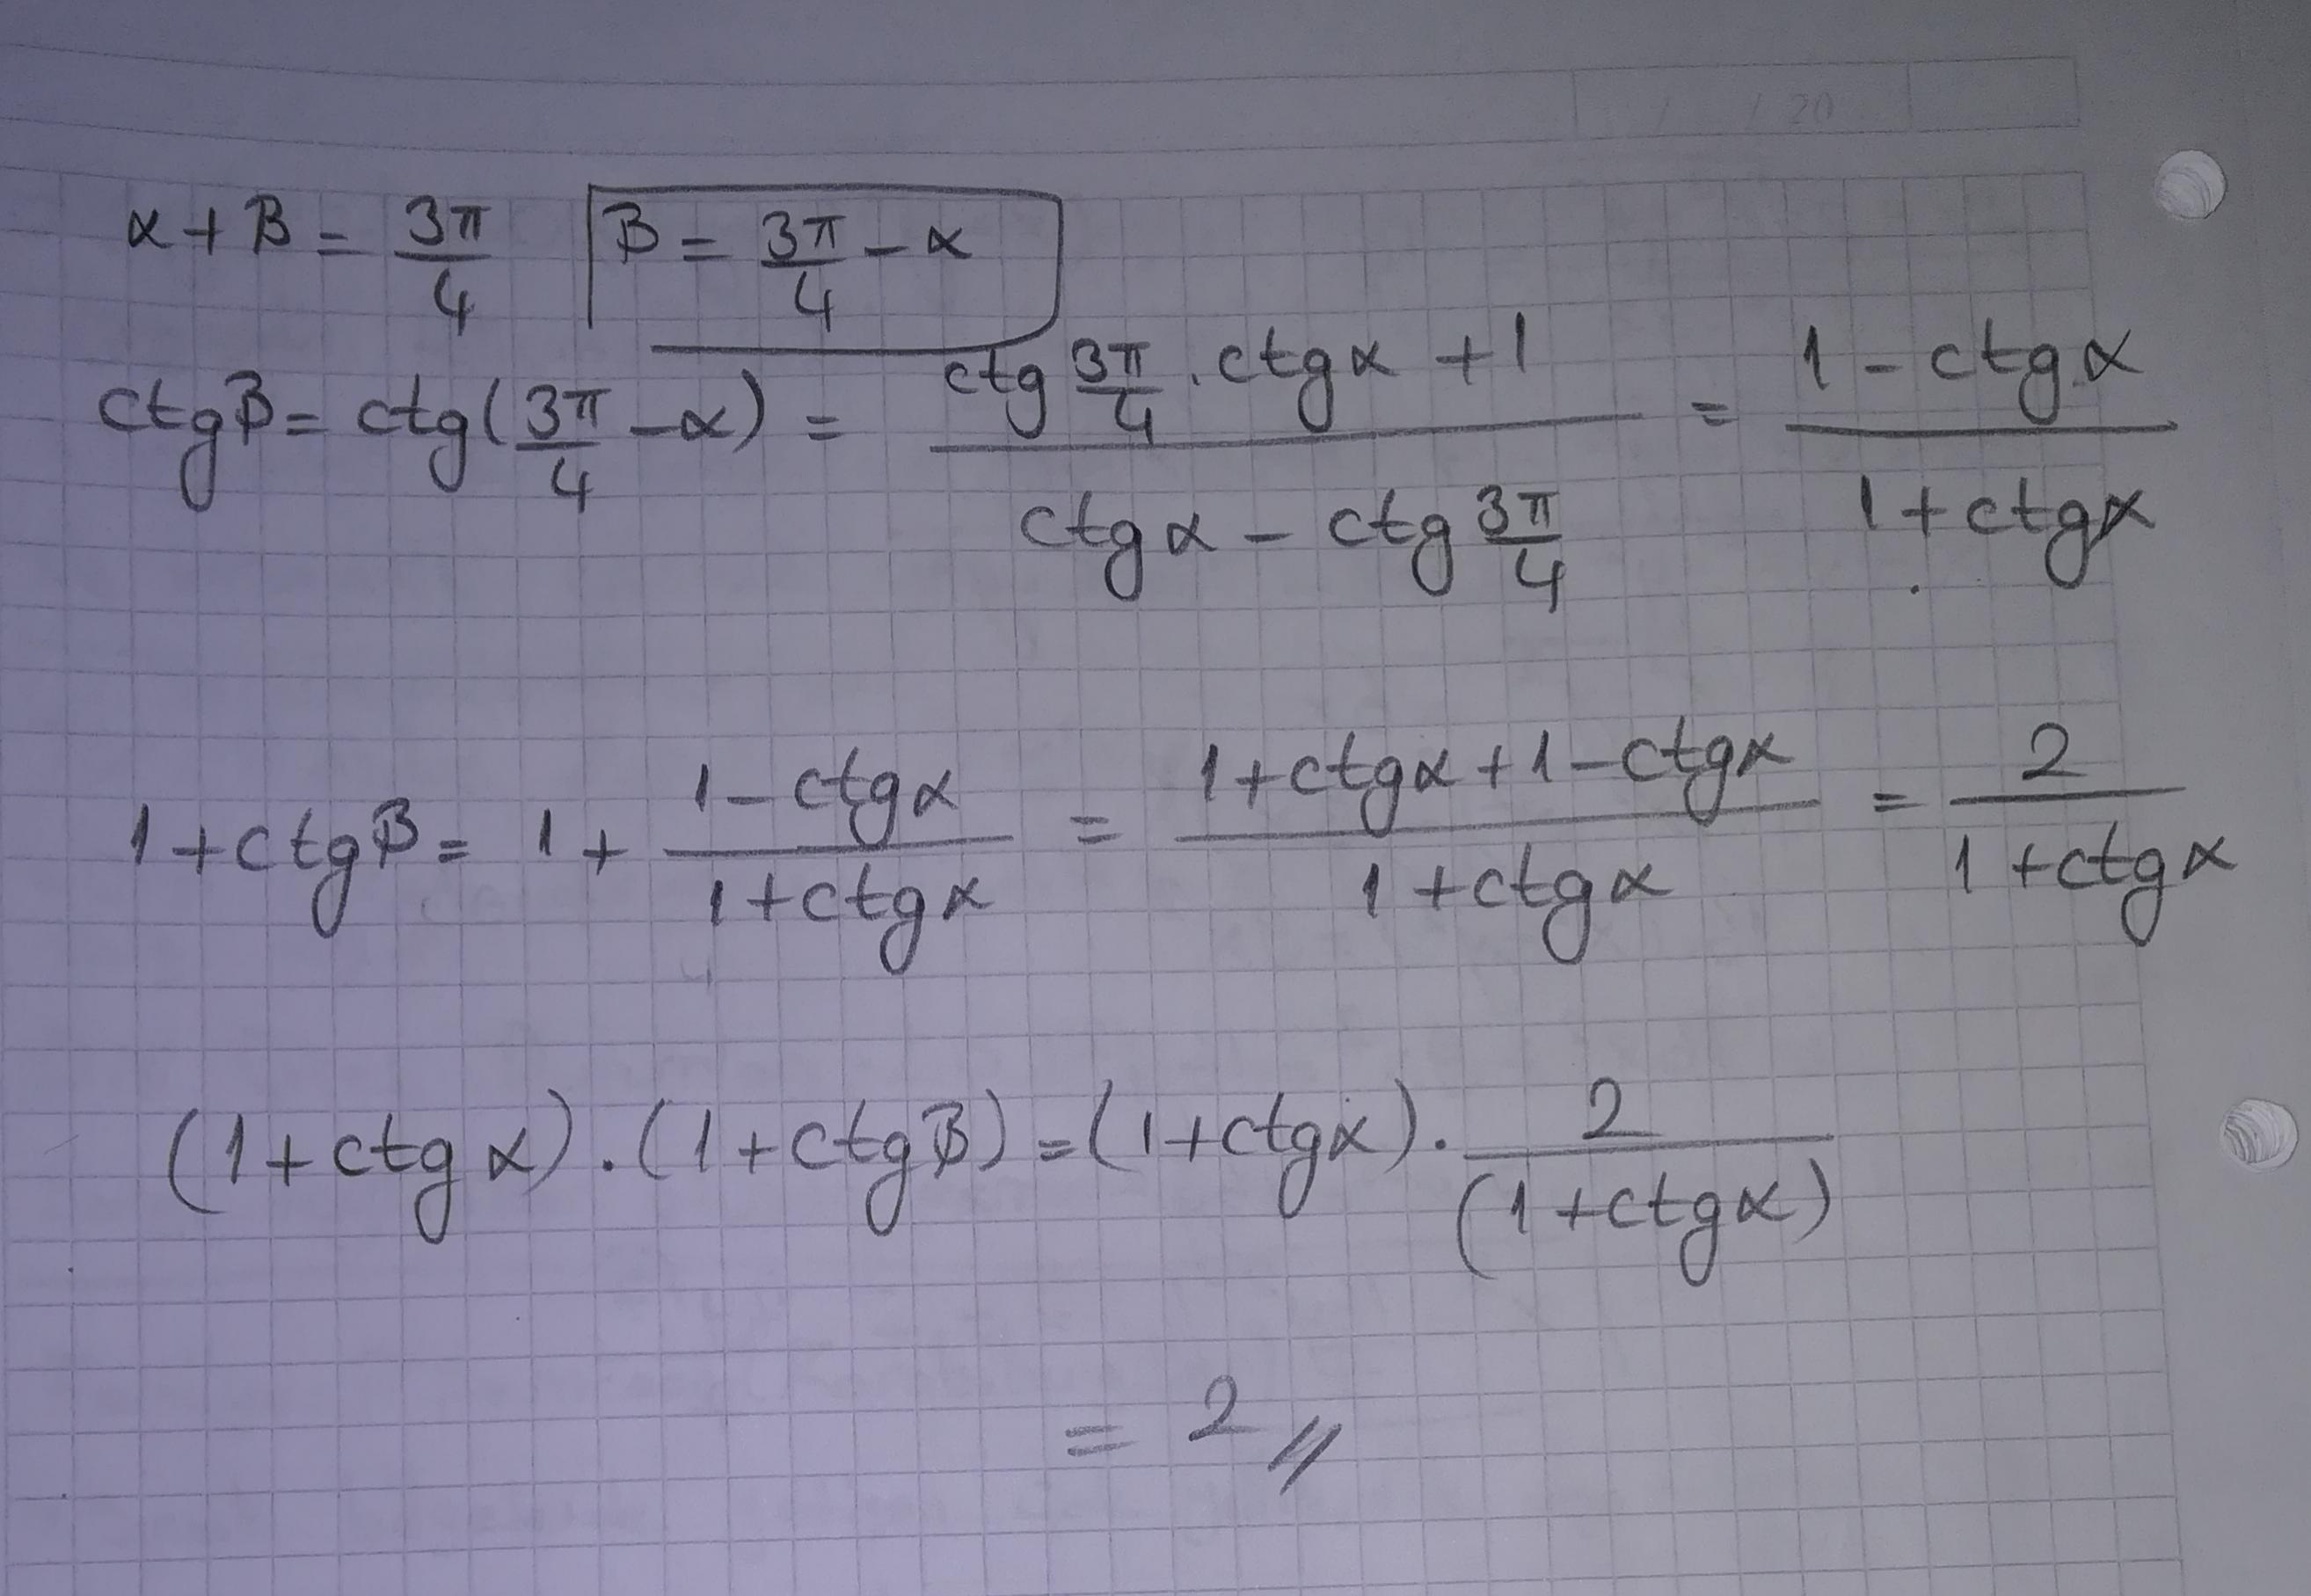 α + β = 3π/4   β = 3π/4 - α
ctgβ = ctg(3π/4 - α) = (ctg 3π/4 . ctgα + 1)/(ctgα - ctg 3π/4) = (1 - ctgα)/(1 + ctgα)
1 + ctgβ = 1 + (1 - ctgα)/(1 + ctgα) = (1 + ctgα + 1 - ctgα)/(1 + ctgα) = 2/(1 + ctgα)
(1 + ctgα) . (1 + ctgβ) = (1 + ctgα) . 2/((1 + ctgα))
= 2 //